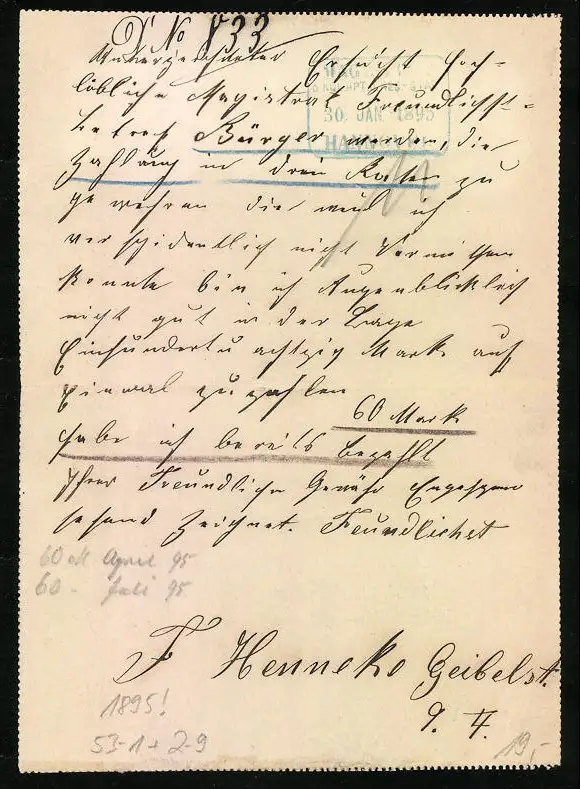 D' No 833
Unterzeichneter Ersucht hoch-
löbliche Magistrat Freundlichst
betref Bürger werden, die
MAGIST
30. JAN. 1895
HANNOVER
Zahlung in drei Raten zu
gewehren die weil ich
verschidentlich nicht Vermithen
konnte bin ich Augenblicklich
nicht gut in der Lage
Einhundertu achtzig Mark auf
Einmal zu zahlen
60 Mark
habe ich bereits bezahlt
Ihrer Freundliche Gewähr Engegen
sehend Zeichnet. Freundlichst
60 M April 95
60 - Juli 95
F Henneke Geibelst.
9. II.
1895!
53-1+2-9
19,-